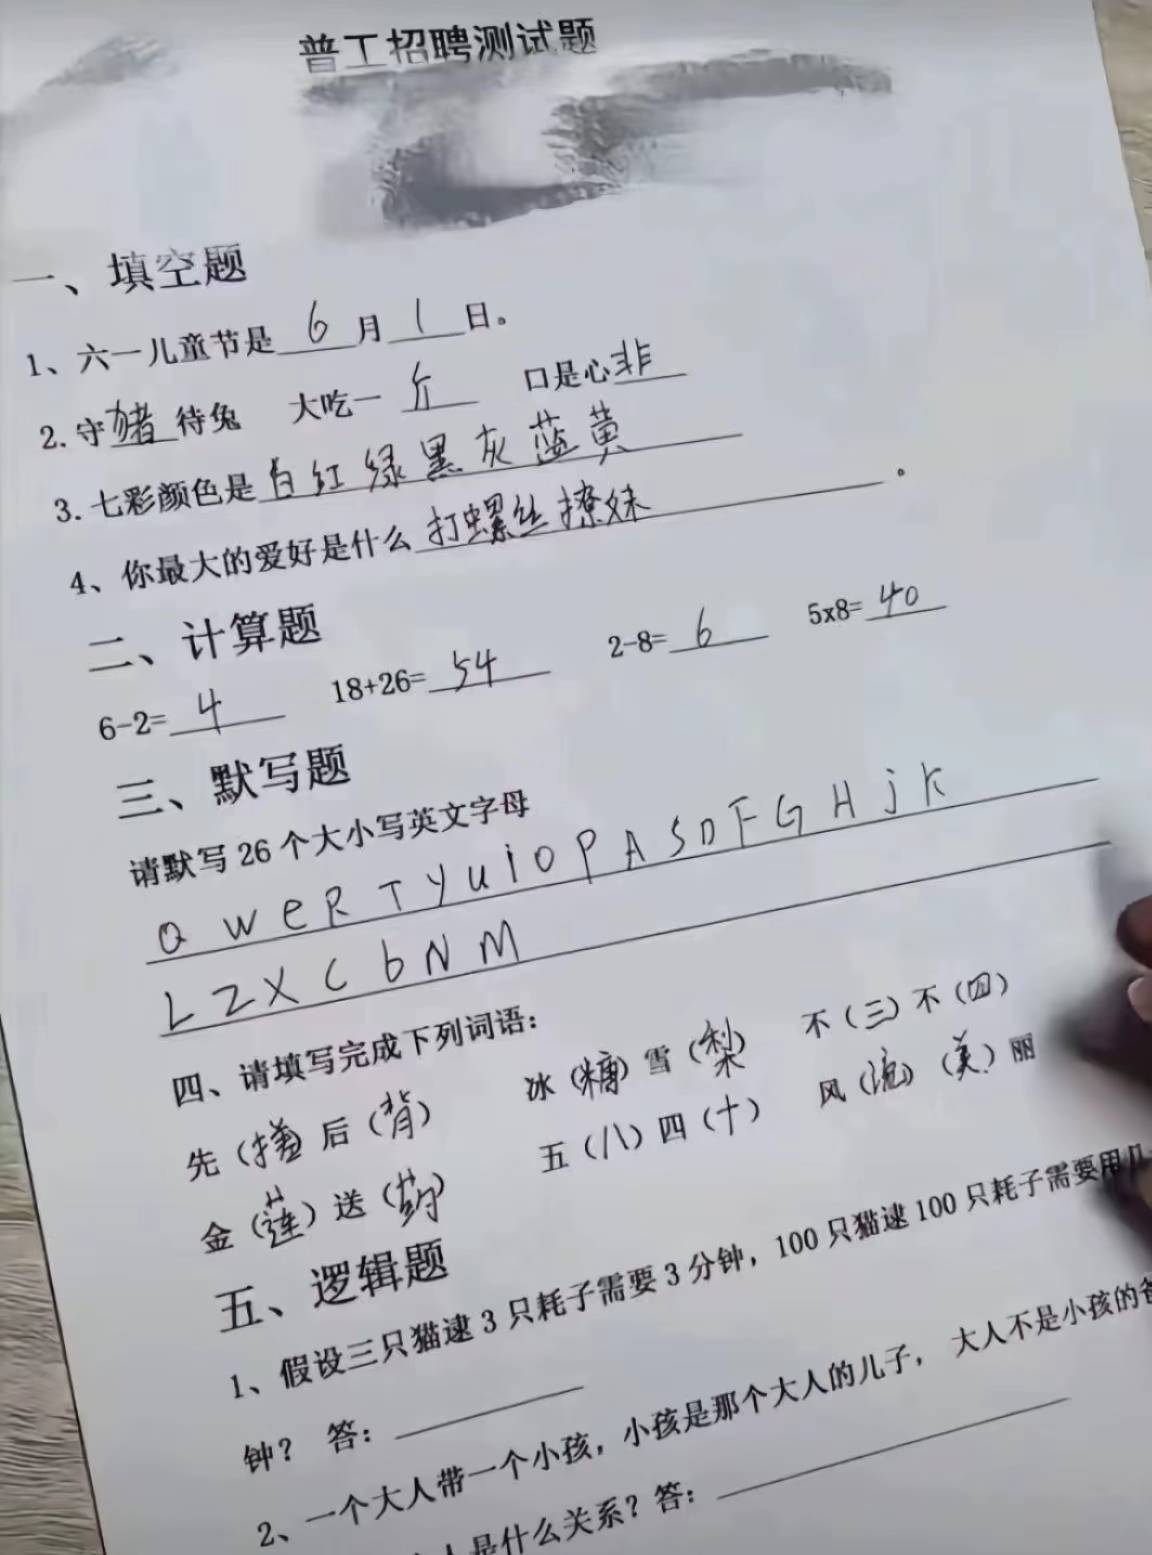 普工招聘测试题
一、填空题
1、六一儿童节是 6 月 1 日。
2.守猪待兔 大吃一 斤 口是心非
3.七彩颜色是白红绿黑灰蓝黄
4、你最大的爱好是什么 打螺丝撩妹 。
二、计算题
6-2= 4 18+26= 54 2-8= 6 5x8= 40
三、默写题
请默写26个大小写英文字母
Q W e R T y u i O P A S D F G H j K
L Z X C b N M
四、请填写完成下列词语:
先( )后(背) 冰(糖)雪(梨) 不(三)不(四)
金(莲)送(药) 五(八)四(十) 风(流)(美)丽
五、逻辑题
1、假设三只猫逮3只耗子需要3分钟,100只猫逮100只耗子需要用几
钟? 答:
2、一个大人带一个小孩,小孩是那个大人的儿子, 大人不是小孩的
人是什么关系?答: